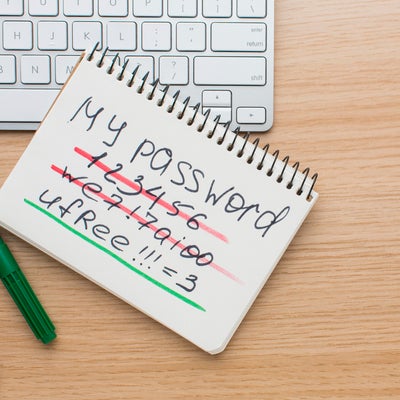 H J K L : ; " ' enter return
B N M ? / shift
My password
123456
we7.!7aioo
ufRee!!!=3